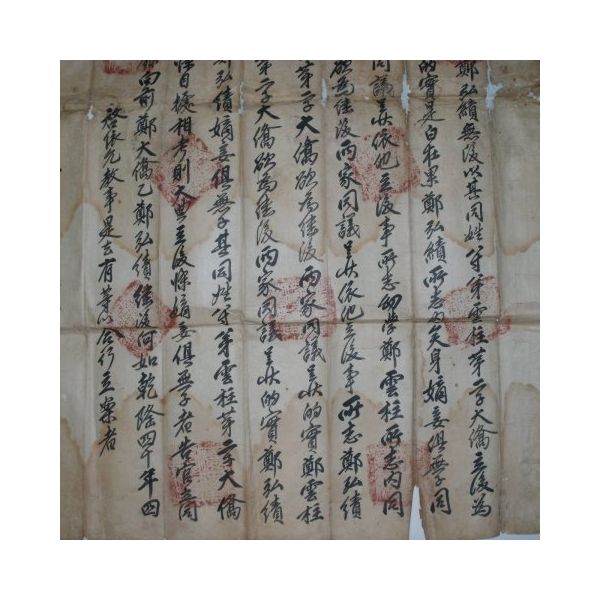 鄭弘績無後以其同姓弟雲柱第二子大僑立後為
的實是白在果鄭弘績所志內矣身嫡妾俱無子同
同議呈狀依他立後事所志幼學鄭雲柱所志內同
欲為繼後兩家同議呈狀依他立後事所志鄭弘績
第二子大僑欲為繼後兩家同議呈狀的實鄭雲柱
第二子大僑欲為繼後兩家同議呈狀的實鄭弘績
弘績嫡妾俱無子其同姓弟雲柱第二子大僑
相考則大典立後條嫡妾俱無子者告官立同
向前鄭大僑乙鄭弘績繼後何如乾隆四十年四
啓依允教事是去有等以合行立案者